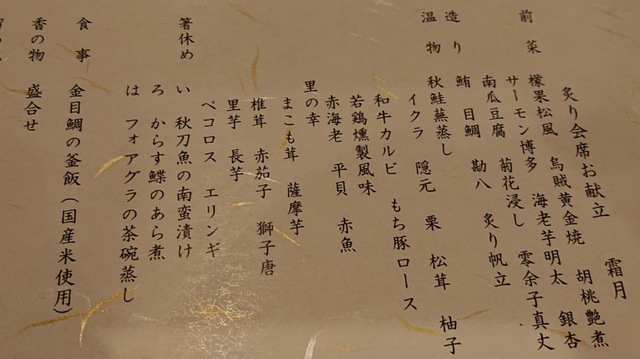 炙り会席お献立　霜月
前菜　檬果松風　烏賊黄金焼　胡桃艶煮
サーモン博多　海老芋明太　銀杏
南瓜豆腐　菊花浸し　零余子真丈
造り　鮪　目鯛　勘八　炙り帆立
温物　秋鮭蕪蒸し
イクラ　隠元　栗　松茸　柚子
和牛カルビ　もち豚ロース
若鶏燻製風味
赤海老　平貝　赤魚
里の幸
まこも茸　薩摩芋
椎茸　赤茄子　獅子唐
里芋　長芋
ペコロス　エリンギ
箸休め　い　秋刀魚の南蛮漬け
ろ　からす鰈のあら煮
は　フォアグラの茶碗蒸し
食事　金目鯛の釜飯（国産米使用）
香の物　盛合せ